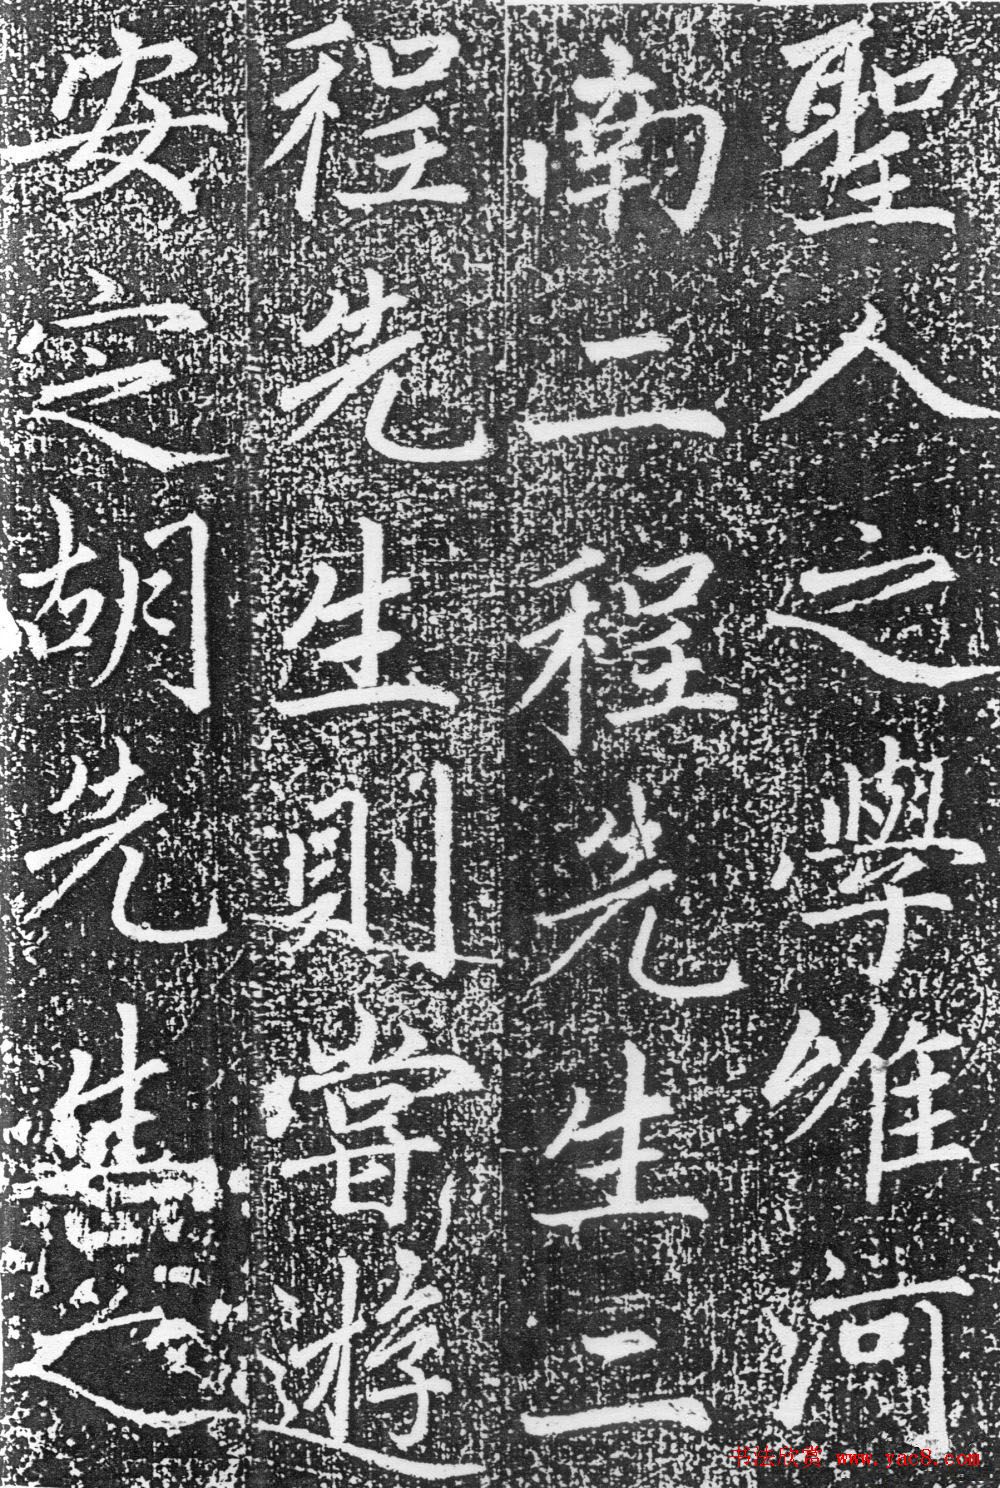 聖人之學惟河
南二程先生二
程先生則嘗遊
安定胡先生之
书法欣赏 www.yac8.com